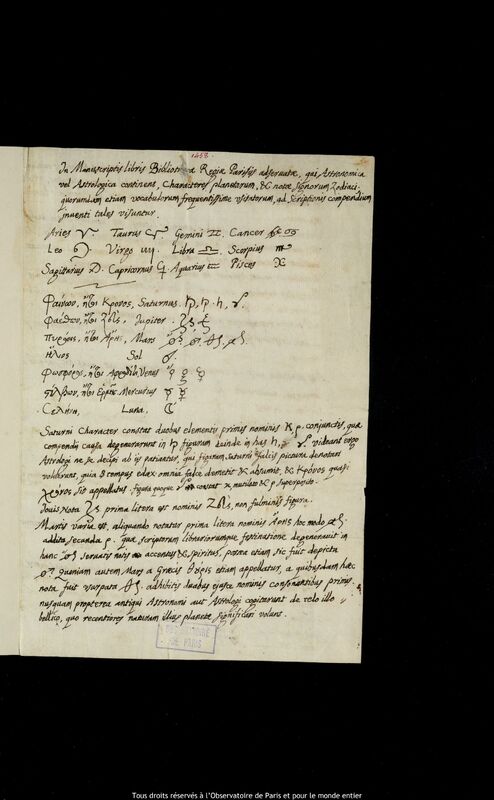 1458.
In Manuscriptis libris Bibliothecæ Regiæ Parisiis adservatæ, qui Astronomica
vel Astrologica continent, Characteres planetarum, & notæ signorum Zodiaci,
quorundam etiam vocabulorum frequentissime usitatorum, ad scriptionis compendium
inventi tales visuntur.
Aries ♈ Taurus ♉ Gemini ♊ Cancer ♋
Leo ♌ Virgo ♍ Libra ♎ Scorpius ♏
Sagittarius Capricornus Aquarius ♒ Pisces ♓
Φαίνων, ἤτοι Κρονος, Saturnus. ♄
Φαεθων, ἤτοι Ζεύς, Jupiter ♃
Πυρόεις, ἤτοι Ἄρης, Mars
Ἥλιος Sol
Φωσφόρος, ἤτοι Venus ♀
Στίλβων, ἤτοι Ἑρμῆς Mercurius ☿
Σελήνη, Luna, ☾
Saturni Character constat duobus elementis primis nominis κ ρ. conjunctis, quæ
compendii causa degenerarunt in figuram deinde in has ♄, videant ergo
Astrologi ne se decipi ab iis patiantur, qui figuram Saturni falcis pictura denotari
voluerunt, quia tempus edax omnia falce demetit & absumit, & Κρόνος quasi
χρόνος sit appellatus. figura quoque constat κ mutilato & ρ superposito.
Jovis nota prima litera est nominis Ζεύς, non fulminis figura.
Martis varia est, aliquando notatur prima litera nominis Ἄρης hoc modo
addita secunda ρ. quæ scriptorum librariorumque festinatione degeneravit in
hanc servatis notis accentus & spiritus, postea etiam sic fuit depicta
quoniam autem Mars a Græcis θοῦρις etiam appellatur, a quibusdam hæc
nota fuit usurpata adhibitis duabus ejusce nominis consonantibus primis.
nusquam propterea antiqui Astronomi aut Astrologi cogitarunt de telo illo
bellico, quo recentiores naturam illius planetæ significari volunt.
OBSERVATOIRE
DE PARIS
Tous droits réservés à l'Observatoire de Paris et pour le monde entier